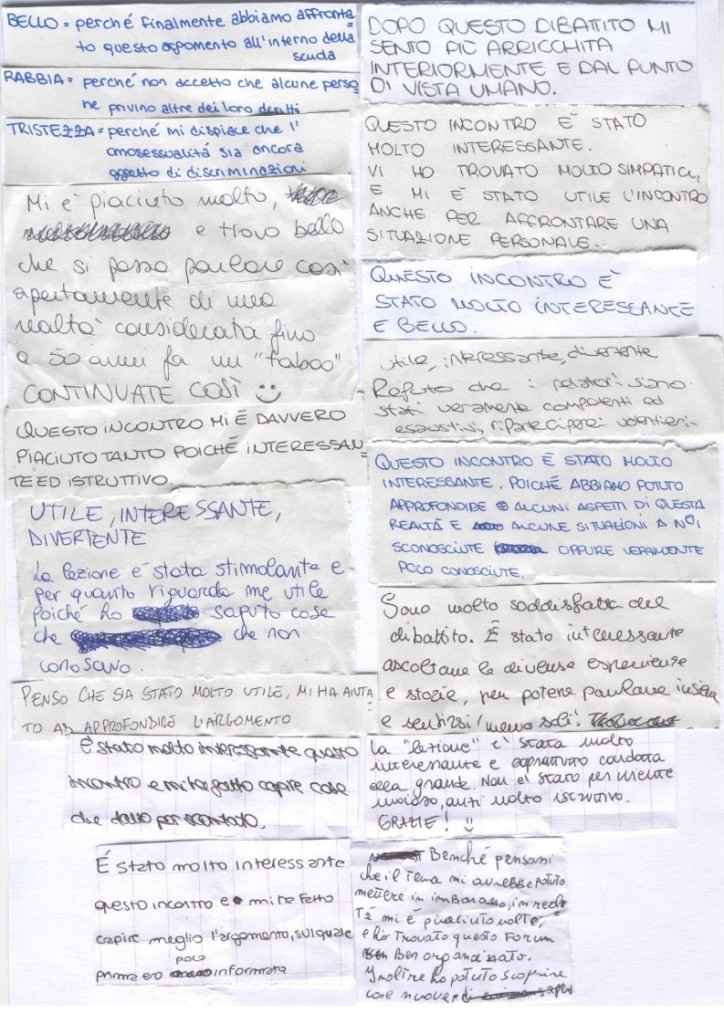 BELLO = perché finalmente abbiamo affronta
to questo argomento all'interno della
scuola
RABBIA = perché non accetto che alcune perso
ne privino altre dei loro diritti
TRISTEZZA = perché mi dispiace che l'
omosessualità sia ancora
oggetto di discriminazioni
Mi è piaciuto molto,
e trovo bello
che si possa parlare così
apertamente di una
realtà considerata fino
a 50 anni fa un "taboo"
CONTINUATE COSÌ
QUESTO INCONTRO MI È DAVVERO
PIACIUTO TANTO POICHÉ INTERESSAN
TE ED ISTRUTTIVO.
UTILE, INTERESSANTE,
DIVERTENTE
La lezione è stata stimolante e
per quanto riguarda me utile
poiché ho saputo cose
che che non
conoscevo.
PENSO CHE SIA STATO MOLTO UTILE, MI HA AIUTA
TO AD APPROFONDIRE L'ARGOMENTO
È stato molto interessante questo
incontro e mi ha fatto capire cose
che davo per scontato.
È stato molto interessante
questo incontro e mi ha fatto
capire meglio l'argomento, sul quale
prima ero poco informata
DOPO QUESTO DIBATTITO MI
SENTO PIÙ ARRICCHITA
INTERIORMENTE E DAL PUNTO
DI VISTA UMANO.
QUESTO INCONTRO È STATO
MOLTO INTERESSANTE.
VI HO TROVATO MOLTO SIMPATICI,
E MI È STATO UTILE L'INCONTRO
ANCHE PER AFFRONTARE UNA
SITUAZIONE PERSONALE.
QUESTO INCONTRO È
STATO MOLTO INTERESSANTE
E BELLO.
utile, interessante, divertente
Reputo che i relatori siano
stati veramente competenti ed
esaustivi, riparteciperei volentieri.
QUESTO INCONTRO È STATO MOLTO
INTERESSANTE. POICHÉ ABBIAMO POTUTO
APPROFONDIRE ALCUNI ASPETTI DI QUESTA
REALTÀ E ALCUNE SITUAZIONI A NOI
SCONOSCIUTE OPPURE VERAMENTE
POCO CONOSCIUTE.
Sono molto soddisfatta del
dibattito. È stato interessante
ascoltare le diverse esperienze
e storie, per poterne parlare insieme
e sentirsi "meno soli".
La "lezione" è stata molto
interessante e soprattutto condotta
alla grande. Non è stato per niente
noioso, anzi molto istruttivo.
GRAZIE!
Benché pensassi
che il tema mi avrebbe potuto
mettere in imbarazzo, in real
tà mi è piaciuto molto,
e ho trovato questo Forum
Ben organizzato.
Inoltre ho potuto scoprire
cose nuove